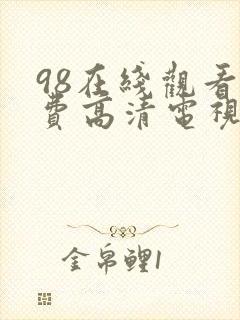 98在綫觀看
費高清電視
金帛鲤1